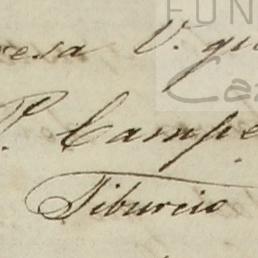 FUN
resa V. qu
P. Campe
Tiburcio